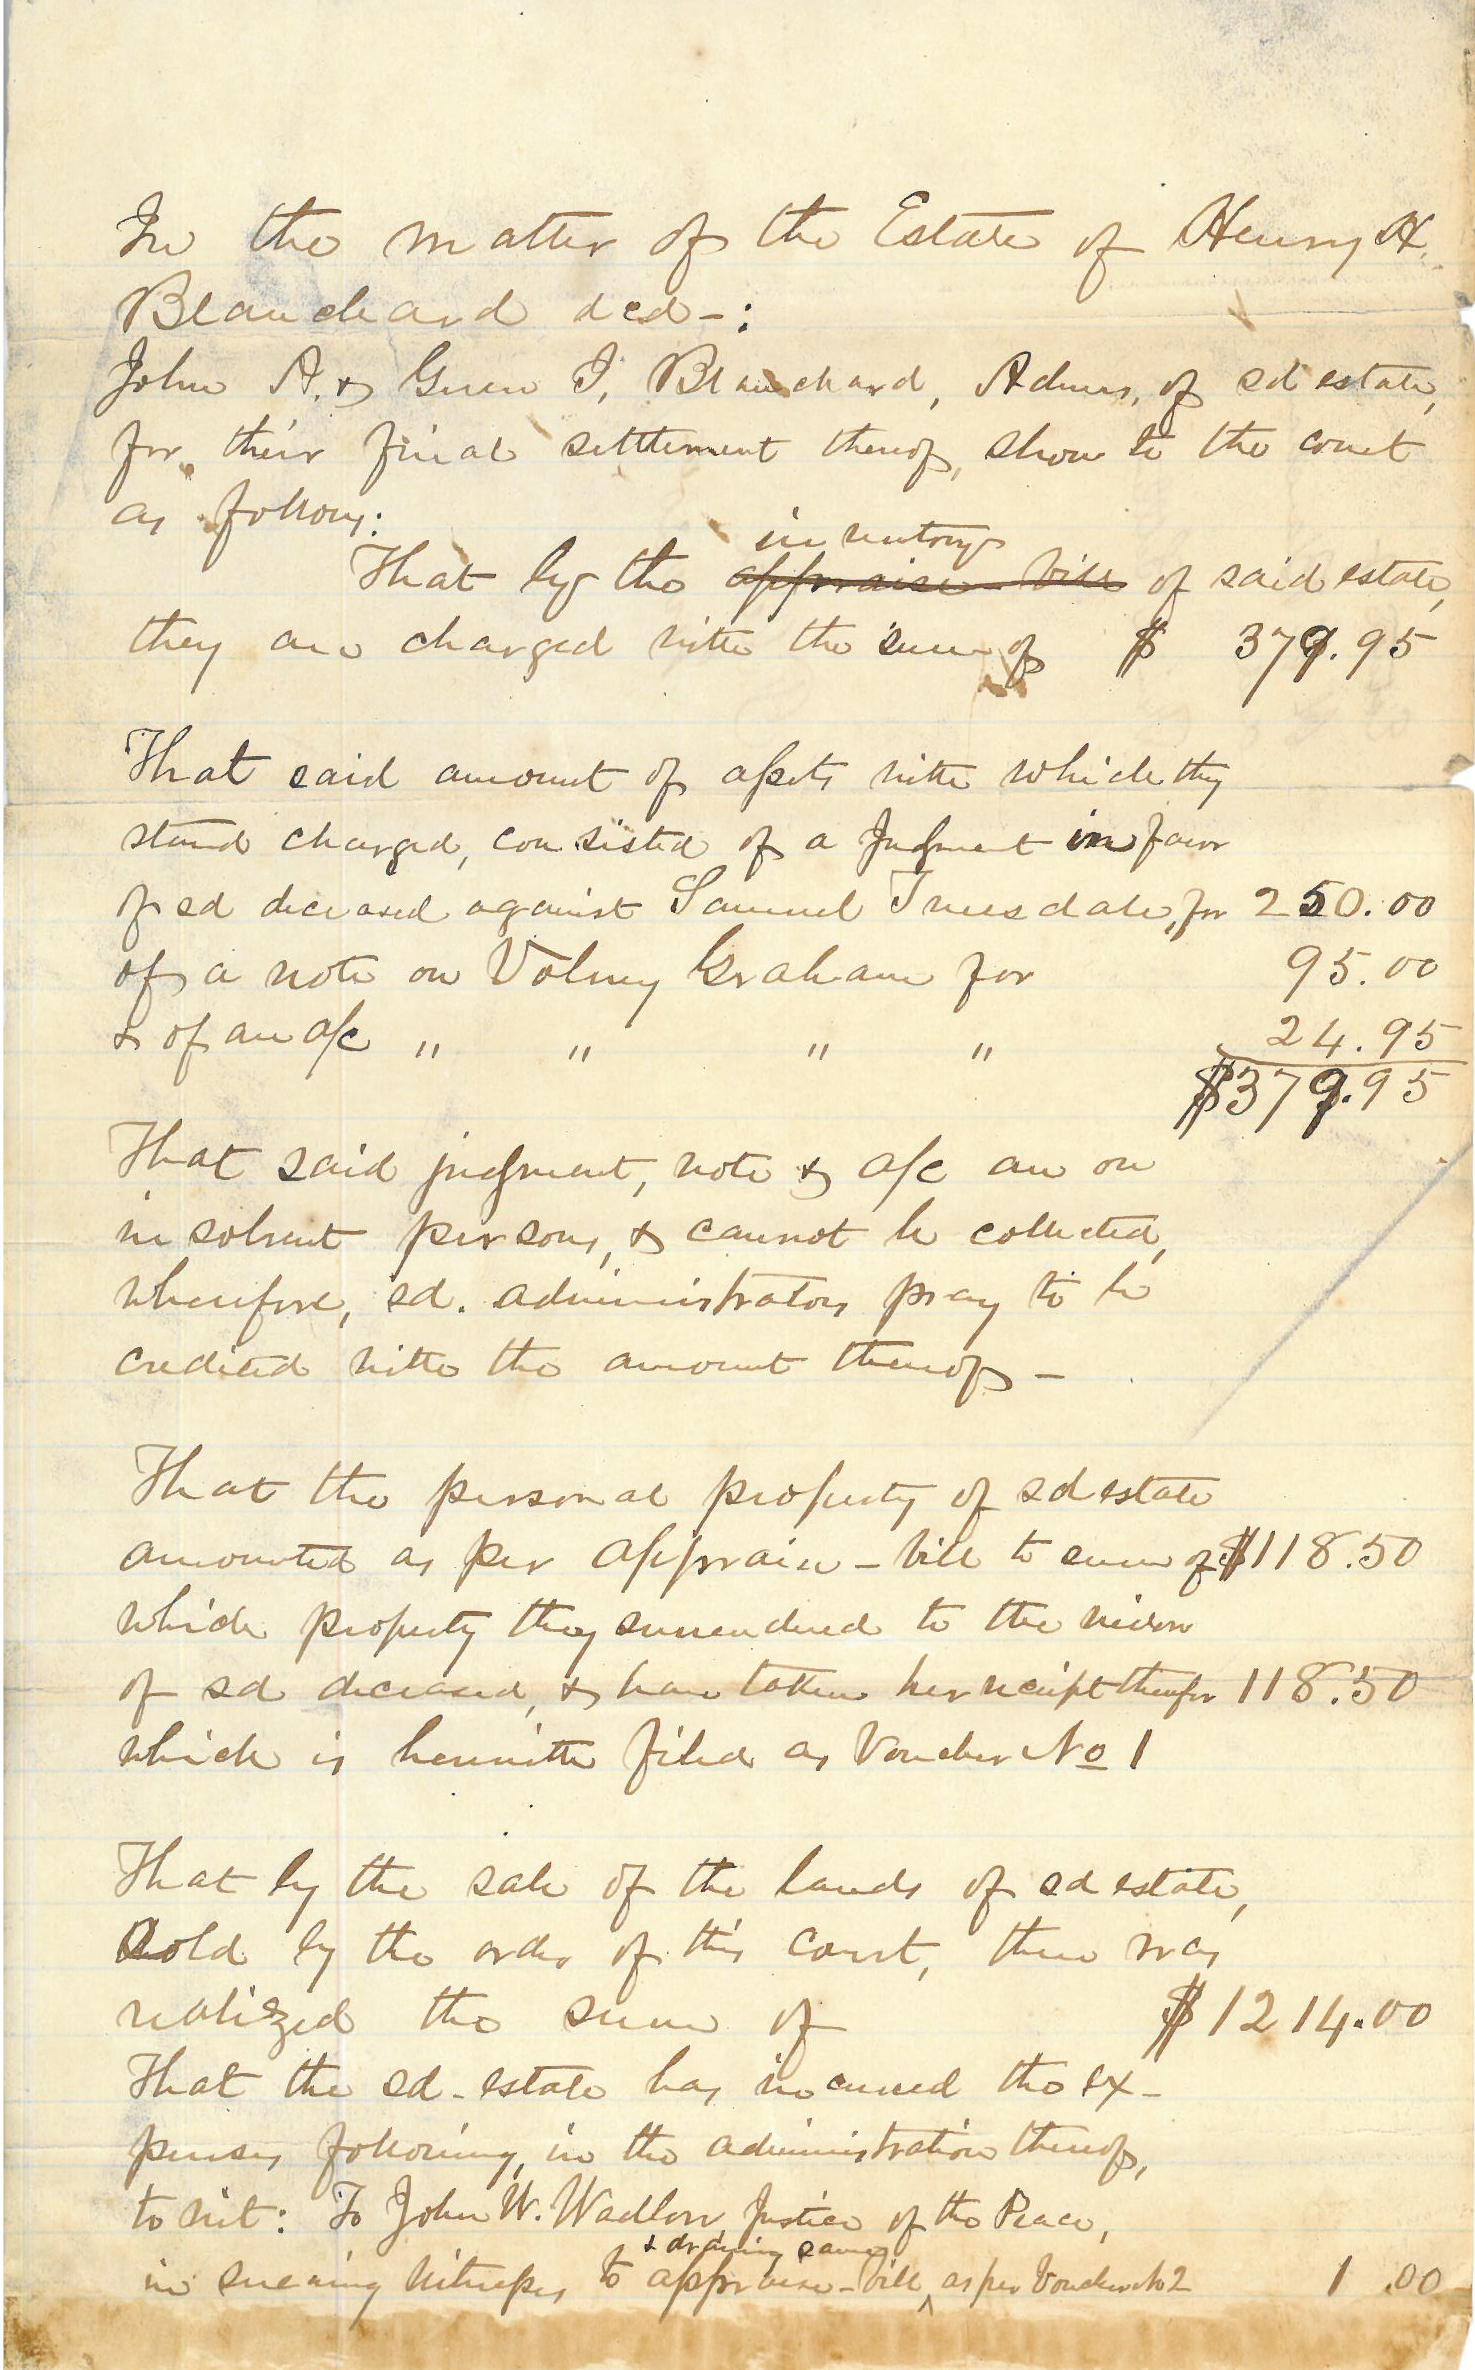 In the matter of the Estate of Henry H.
Blanchard decd-:
John A. & Green I. Blanchard, Admrs. of sd estate,
for their final settlement thereof, show to the court
as follows:
inventory
That by the appraise-bill of said estate,
they are charged with the sum of $ 379.95
That said amount of assets with which they
stand charged, consisted of a Judgment in favor
of sd deceased against Samuel Truesdale, for 250.00
of a note on Volney Graham for 95.00
& of an a/c " " " " 24.95
$379.95
That said judgment, note & a/c are on
insolvent persons, & cannot be collected,
wherefore, sd. administrators pray to be
credited with the amount thereof -
That the personal property of sd estate
amounted as per appraise-bill to sum of $118.50
which property they surrendered to the widow
of sd deceased, & have taken her receipt therefor 118.50
which is herewith filed as Voucher No 1
That by the sale of the lands of sd estate,
sold by the order of this court, there was
realized the sum of $1214.00
That the sd-estate has incurred the ex-
penses following, in the administration thereof,
to wit: To John W. Wadlow Justice of the Peace,
& drawing same
in swearing witnesses to appraise-bill, as per Voucher No 2 1.00